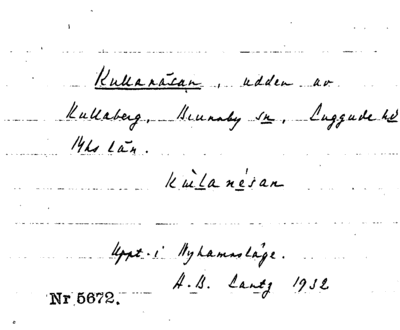 Kullanäsan, udden av
Kullaberg, Brunnby sn, Luggude hd
Mhs län.
Kùlanésan
Uppt. i Nyhamnsläge.
A. B. Lantz 1932
Nr 5672.